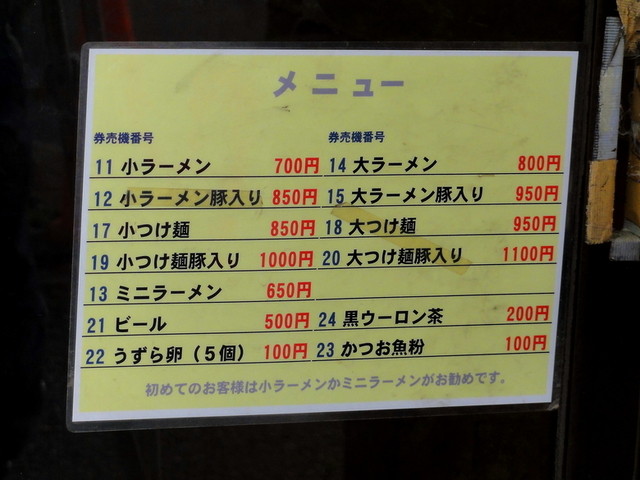 メニュー
券売機番号 券売機番号
11 小ラーメン 700円 14 大ラーメン 800円
12 小ラーメン豚入り 850円 15 大ラーメン豚入り 950円
17 小つけ麺 850円 18 大つけ麺 950円
19 小つけ麺豚入り 1000円 20 大つけ麺豚入り 1100円
13 ミニラーメン 650円
21 ビール 500円 24 黒ウーロン茶 200円
22 うずら卵（５個） 100円 23 かつお魚粉 100円
初めてのお客様は小ラーメンかミニラーメンがお勧めです。